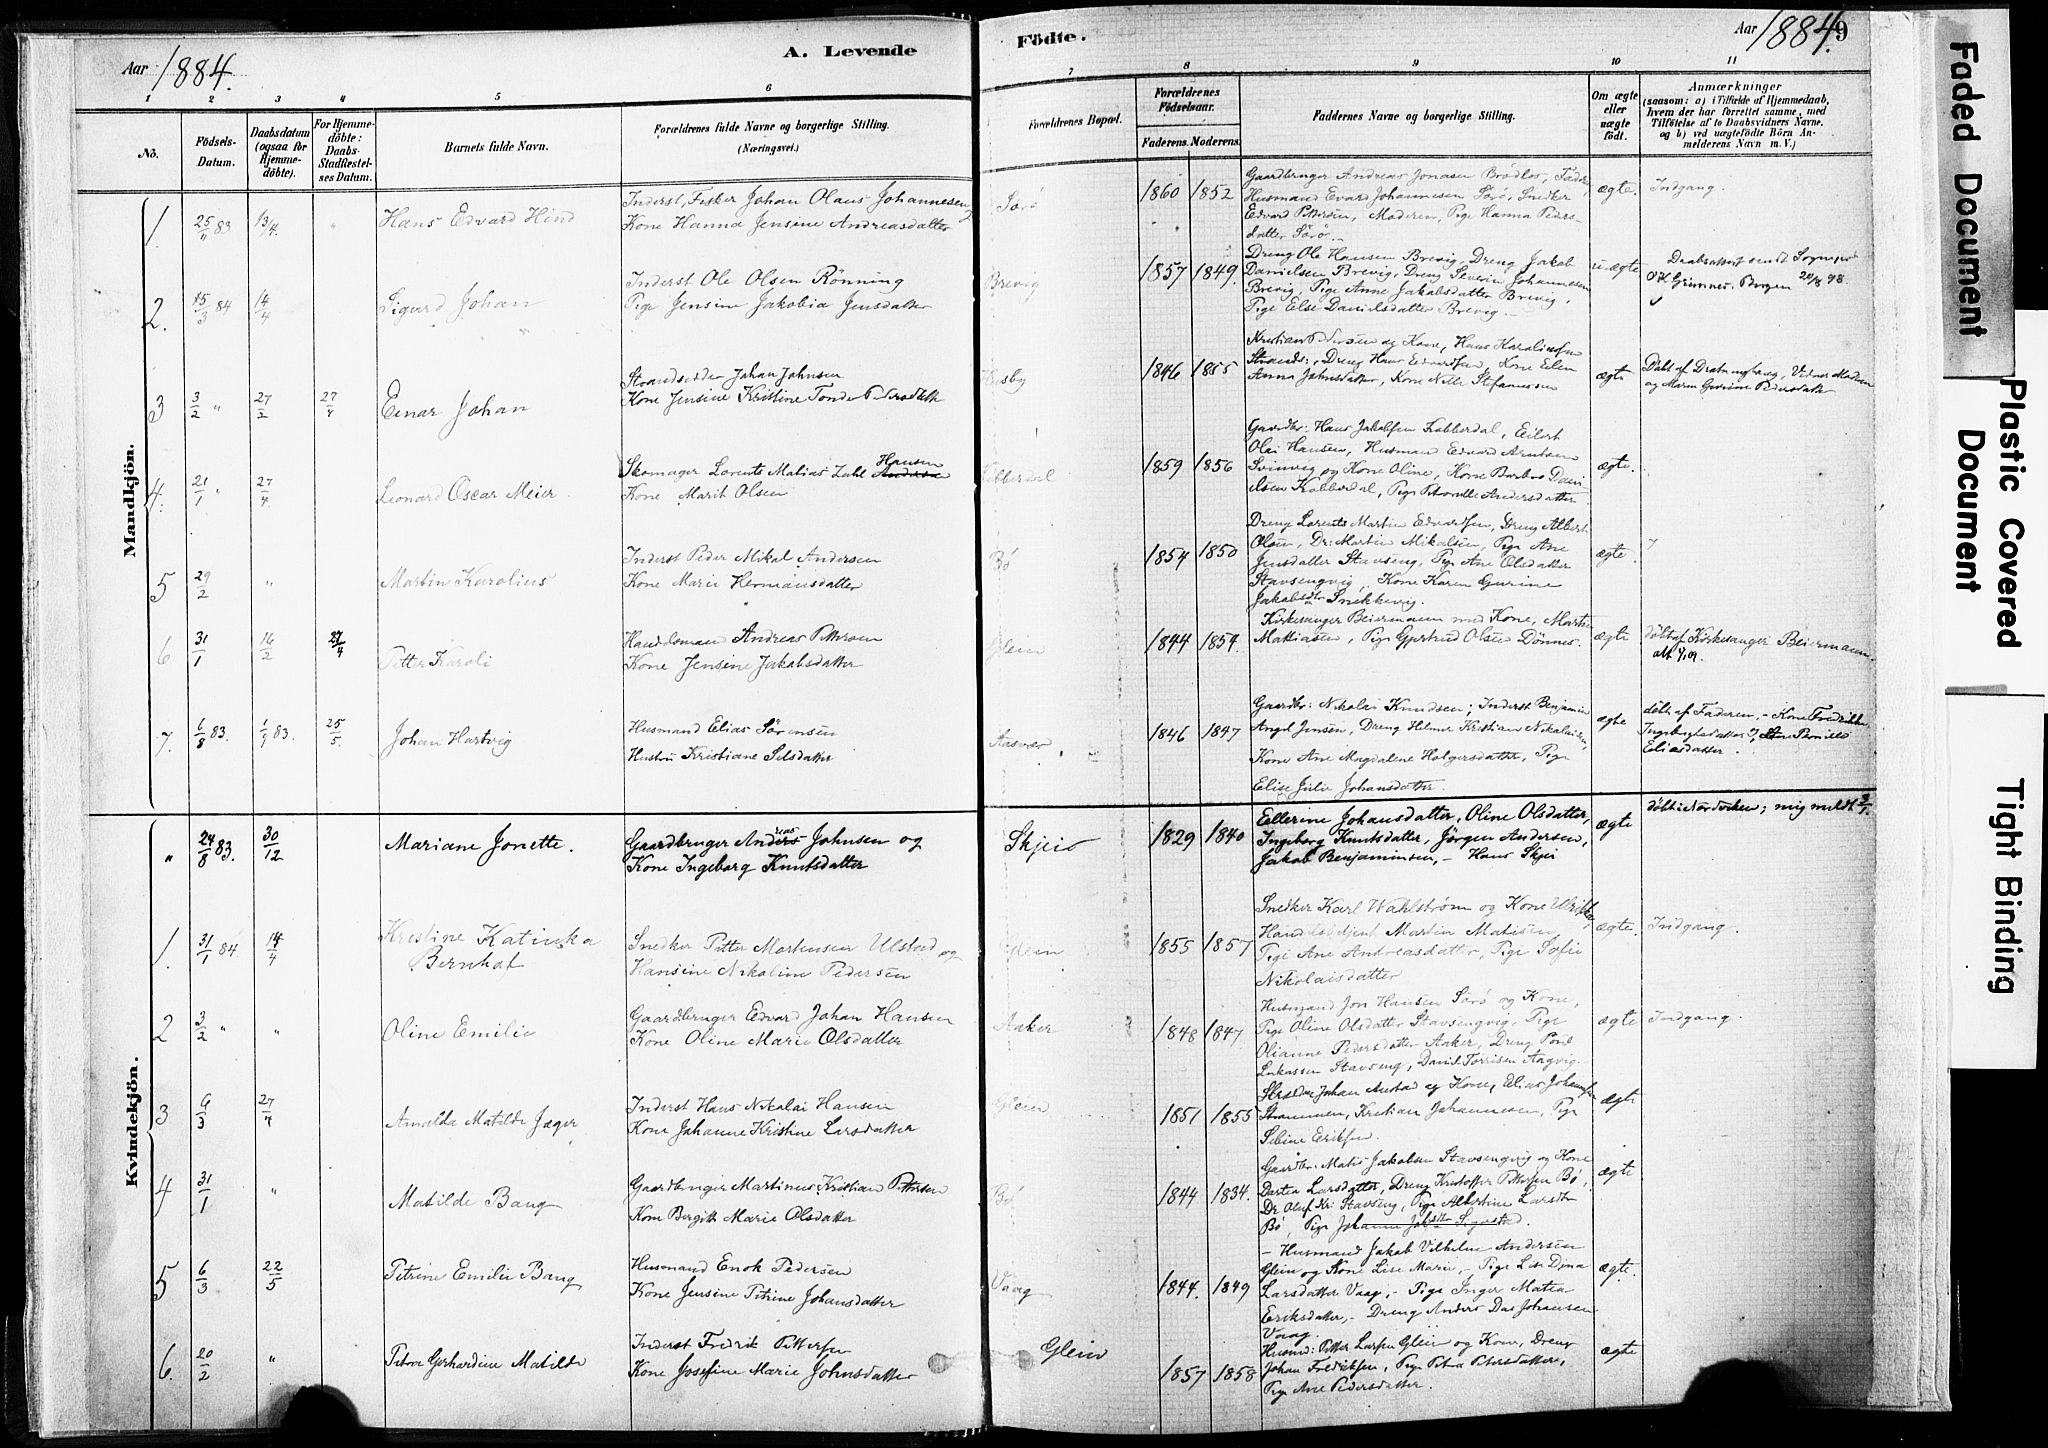 Aar 1884.
A. Levende
Födte.
Aar 1884.
9
1 2 3 4 5 6 7 8 9 10 11
No.
Födsels-
Datum.
Daabsdatum
(ogsaa for
Hjemme-
döbte).
For Hjemme-
döbte:
Daabs-
Stadfæstel-
ses Datum.
Barnets fulde Navn.
Forældrenes fulde Navne og borgerlige Stilling.
(Næringsvei.)
Forældrenes Bopæl.
Forældrenes
Födselsaar.
Faderens. Moderens.
Faddernes Navne og borgerlige Stilling.
Om ægte
eller
uægte
födt.
Anmærkninger
(saasom: a) i Tilfælde af Hjemmedaab,
hvem der har forrettet samme, med
Tilföielse af to Daabsvidners Navne,
og b) ved uægtefödte Börn An-
melderens Navn m. V.)
Mandkjön.
1. 25/11 83 13/4. " Hans Edvard Hind
Inderst, Fisker Johan Olaus Johannesen
Kone Hanna Jensine Andreasdatter
Sørø
1860 1852
Gaardbruger Andreas Jonasen Brødløs, Fadder,
Husmand Evard Johannesen Sørø, Snedker
Edvard Pettersen, Moderen, Pige Hanna Peders-
datter Sørø
ægte. Indgang.
2. 15/3 84 14/4 Sigurd Johan
Inderst Ole Olsen Rönning
Pige Jensine Jakobia Jensdatter
Brevig
1857 1849.
Dreng Ole Hansen Brevig, Dreng Jakob
Danielsen Brevig, Dreng Severin Johannesen
Brevig, Pige Anne Jakobsdatter Brevig,
Pige Else Danielsdatter Brevig.
uægte
Daabsattest sendt Sognepr
Grimnes, Bergen 20/8 98.
3 3/2 " 27/2 27/4 Einar Johan
Strandsidder Johan Johnsen
Kone Jensine Kristine Tonder Pedersdatter
Husby
1846 1855
Kristian Pedersen og Kone, Hans
Strands:, Dreng Hans Edvardsen, Kone Elen
Anna Johnsdatter, Kone Nille Stefanussen
ægte
Döbt af Vidner Moderen
og Maren Gurine Pedersdatter
4. 21/1 " 27/4 Leonard Oscar Meier
Skomager Lorents Matias Zahl Hansen
Kone Marit Olsen
Kobberdal
1859 1856
Gaardbr: Hans Jakobsen Kobberdal, Eilert
Olai Hansen, Husmand Edvard Arntsen
Svinvig og Kone Oline, Kone Barbro Dani
elsen Kobberdal, Pige Petronelle Andersdatter
ægte.
5 29/2 " Martin Karolius
Inderst Peder Mikal Andersen
Kone Marie Hermansdatter
Bö
1854 1850
Dreng Lorents Martin Edvardsen, Dreng Albert
Olsen, Dr: Martin Mikalsen, Pige Ane
Jensdatter Stavseng, Pige Ane Olsdatter
Stavsengvig, Kone Karen Gurine
Jakobsdtr Snekkevig.
ægte.
6 31/1 16/2 27/4 Petter Karoli
Handelsmand Andreas Pettersen
Kone Jensine Jakobsdatter
Glein
1844 1854.
Kirkesanger Beiermann med Kone, Martin
Mattiasen, Pige Gjertrud Olsen Dönnes.
ægte
döbt af Kirkesanger Beiermann.
7. 6/8 83. 1/9 83. 25/5. Johan Hartvig
Husmand Elias Sörensen
Hustru Kristiane Nilsdatter
Aasvær
1846 1847
Gaardbr: Nikolai Knudsen; Inderst Benjamin
Angel Jensen, Dreng Helmer Kristian Nikolaisen,
Kone Ane Magdalene Holgersdatter, Pige
Elise Julie Johansdatter.
ægte
döbt af Faderen, - Kone Fredrikke
Ingebrigtsdatter, Pernille
Eliasdatter.
Kvindekjön.
" 24/8 83. 30/12 Mariane Jonette.
Gaardbruger Andreas Johnsen og
Kone Ingeborg Knutsdatter
Skjeiö
1829 1840
Ellerine Johansdatter, Oline Olsdatter,
Ingeborg Knutsdatter, Jörgen Andersen,
Jakob Benjaminsen, - Hans Skjei
ægte
döbt i Nordviken; mig meldt 3/1.
1. 31/1 84. 14/4 Kristine Katinka
Bernhof
Snedker Petter Mortensen Ulstad og
Hansine Nikoline Pedersen
Glein
1855 1857
Snedker Karl Wahlström og Kone Ulrikke,
Handelsbetjent Martin Matisen,
Pige Ane Andreasdatter, Pige Sofie
Nikolaisdatter
ægte. Indgang.
2 3/2 " " Oline Emilie
Gaardbruger Edvard Johan Hansen
Kone Oline Marie Olsdatter
Aaker
1848 1847
Husmand Jon Hansen Sörö og Kone,
Pige Oline Olsdatter Stavsengvig, Pige
Olianne Pedersdatter Aaker, Dreng Poul
Lukassen Stavseng, David Torrisen Aagvig
ægte Indgang.
3 9/3 27/4 Arnolda Matilde Jæger
Inderst Hans Nikolai Hansen
Kone Johanne Kristine Larsdatter
Glein
1851 1855
Skrædder Johan Austad og Kone, Elias Johansen
Strømmen, Kristian Johannesen, Pige
Sebine Eriksen.
ægte
4 31/1 " Matilde Bang
Gaardbruger Martinus Kristian Pettersen
Kone Bergitte Marie Olsdatter
Bö
1844 1834.
Gaardbr: Matis Jakobsen Stavsengvig og Kone
Dortea Larsdatter, Dreng Kristoffer Pettersen Bö,
Dr Oluf Kri: Stavseng, Pige Albertine Larsdtr
Bö, Pige Johanne
ægte
5 6/3 22/5 Petrine Emilie Bang
Husmand Enok Pedersen
Kone Jensine Petrine Johansdatter
Vaag
1844. 1849
- Husmand Jakob Vilhelm Andersen
Glein og Kone Lise Marie, - Pige Lise Dina
Larsdatter Vaag, - Pige Inger Matea
Eriksdatter, - Dreng Anders Dae Johansen
Vaag.
ægte.
6. 20/2 " Petra Gerhardine Matilde
Inderst Fredrik Pettersen
Kone Josefine Marie Johnsdatter
Glein
1857 1858
Husmd: Petter Larsen Glein og Kone, Dreng
Johan Fredriksen, Pige Petra Petersdatter,
Pige Ane Pedersdatter.
ægte
Faded Document
Plastic Covered
Document
Tight Binding